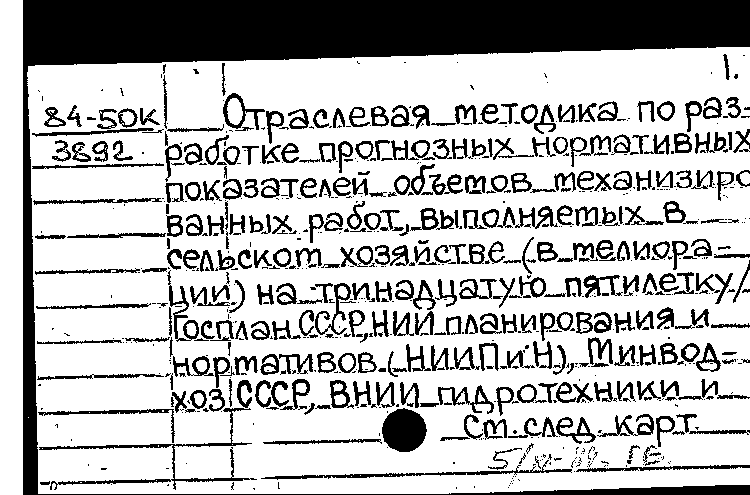 1.
84-50К Отраслевая методика по раз-
3892 работке прогнозных нормативных
показателей объемов механизиро
ванных работ, выполняемых в
сельском хозяйстве (в мелиора-
ции) на тринадцатую пятилетку/
Госплан СССР, НИИ планирования и
нормативов (НИИПиН), Минвод-
хоз СССР, ВНИИ гидротехники и
См. след. карт.